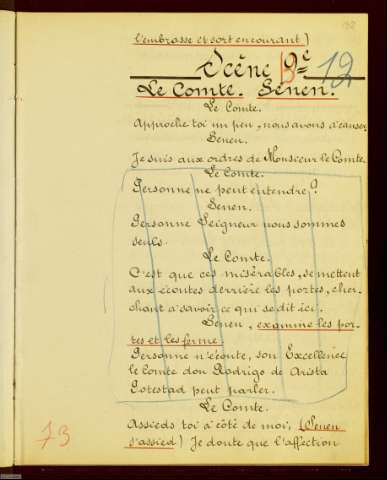 l'embrasse et sort en courant)
Scène 9e 12
Le Comte. Senen.
Le Comte.
Approche toi un peu, nous avons à causer
Senen.
Je suis aux ordres de Monsieur le Comte.
Le Comte.
Personne ne peut entendre?
Senen.
Personne Seigneur nous sommes
seuls.
Le Comte.
C'est que ces misérables, se mettent
aux écoutes derrière les portes, cher-
chant à savoir ce qui se dit ici.
Senen, examine les por-
tes et les ferme.
Personne n'écoute, son Excellence
le Comte don Rodrigo de Arista
Potestad peut parler.
Le Comte.
Assieds toi à côté de moi, (Senen
s'assied) Je doute que l'affection
73